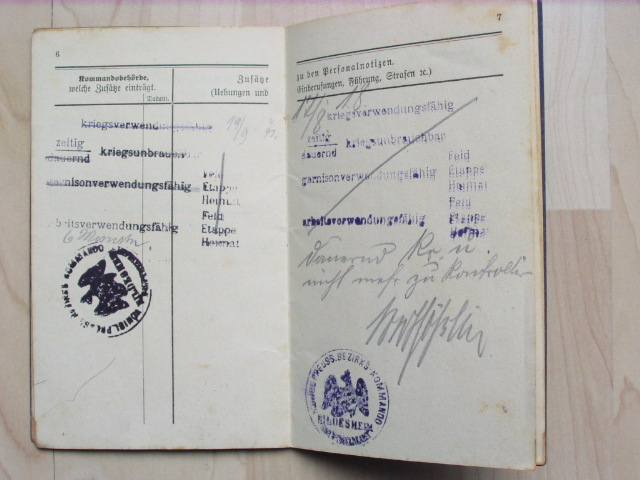 6
Kommandobehörde,
welche Zusätze einträgt.
Datum.
Zusätze
(Uebungen und
kriegsverwendungsfähig
19/9
zeitig
dauernd kriegsunbrauchbar
garnisonverwendungsfähig
Feld
Etappe
Heimat
arbeitsverwendungsfähig
Feld
Etappe
Heimat
6 Monate
7
zu den Personalnotizen.
Einberufungen, Führung, Strafen ꝛc.)
kriegsverwendungsfähig
zeitig
dauernd kriegsunbrauchbar
garnisonverwendungsfähig
Feld
Etappe
Heimat
arbeitsverwendungsfähig
Feld
Etappe
Heimat
dauernd Kr. u.
nicht mehr zu kontrollie
PREUSS. BEZIRKS-KOMMANDO
HILDESHEIM